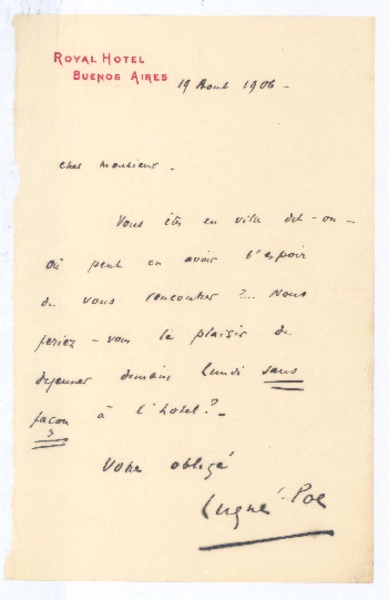 ROYAL HOTEL
BUENOS AIRES
19 Aout 1906 -
Cher Monsieur -
Vous êtes en ville dit-on -
Où peut on avoir l'espoir
de vous rencontrer ?... Nous
feriez-vous le plaisir de
dejeuner demain lundi sans
façon à l'hotel ? -
Votre obligé
Lugné-Poe